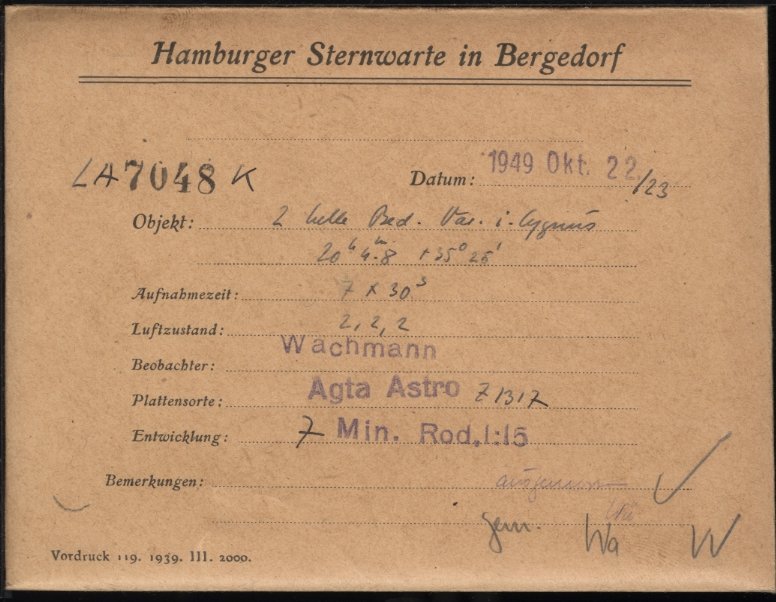 Hamburger Sternwarte in Bergedorf
LA 7048 K
Datum: 1949 Okt. 22./23
Objekt: 2 helle Bed. Var. i. Cygnus
20ʰ 4ᵐ.8 +35° 25'
Aufnahmezeit: 7 x 30ˢ
Luftzustand: 2, 2, 2
Beobachter: Wachmann
Plattensorte: Agfa Astro Z 1317
Entwicklung: 7 Min. Rod. 1:15
Bemerkungen:
gem. Wa
Vordruck 119. 1939. III. 2000.